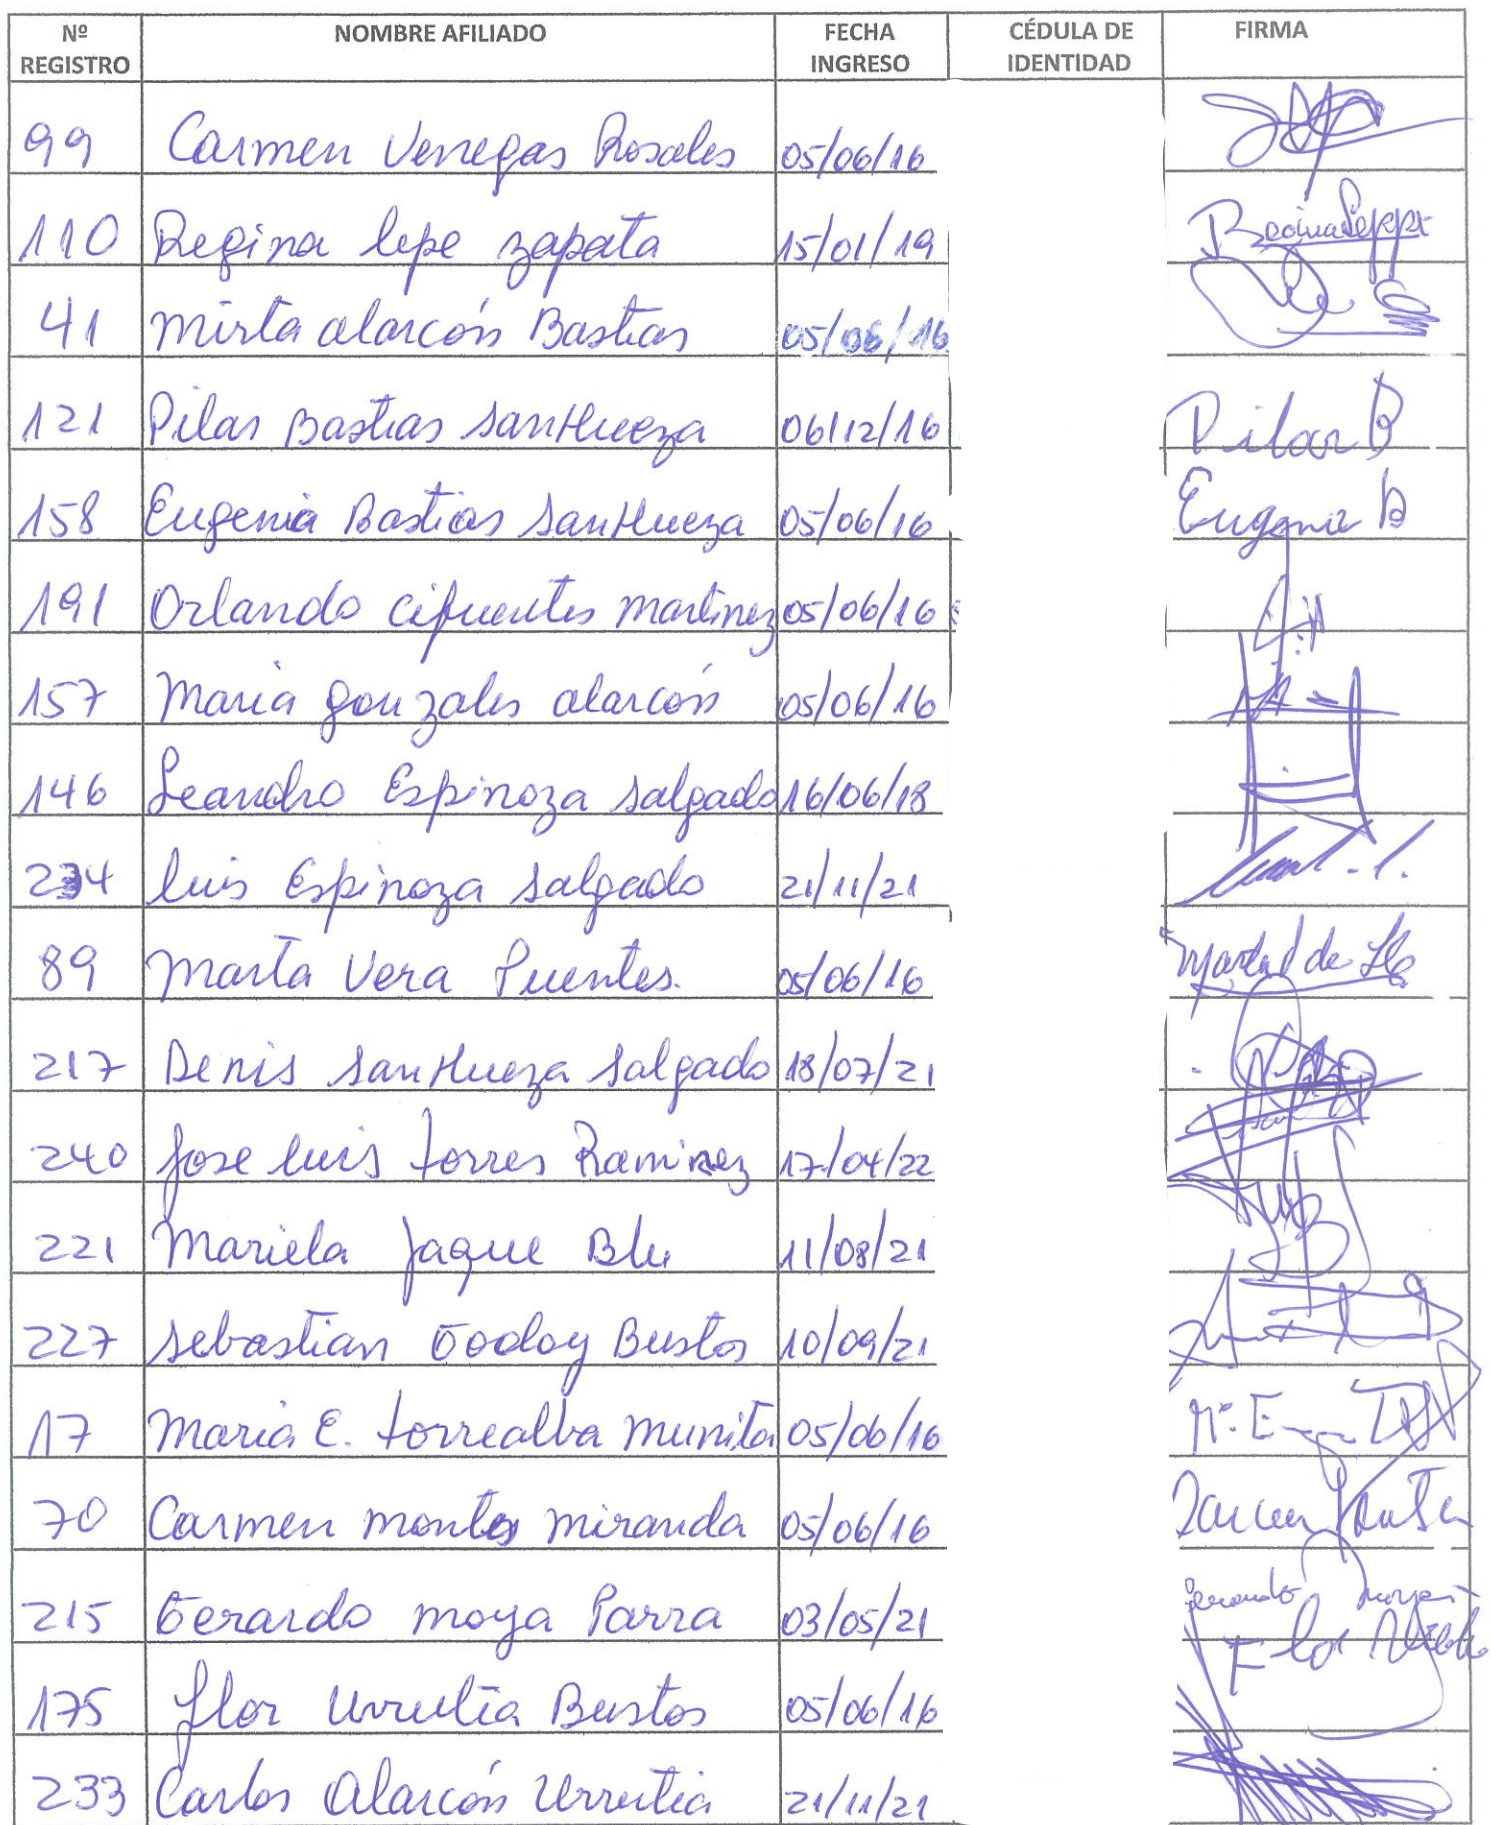 Nº REGISTRO NOMBRE AFILIADO FECHA INGRESO CÉDULA DE IDENTIDAD FIRMA
99 Carmen Venegas Rosales 05/06/16
110 Regina lepe zapata 15/01/19
41 Mirta alarcón Bastias 05/06/16
121 Pilar Bastias SanHueza 06/12/16 Pilar B
158 Eugenia Bastias SanHueza 05/06/16 Eugenia B
191 Orlando Cifuentes Martinez 05/06/16
157 Maria gonzales alarcón 05/06/16
146 Leandro Espinoza Salgado 16/06/18
234 luis Espinoza Salgado 21/11/21
89 Marta Vera Puentes. 05/06/16
217 Denis SanHueza Salgado 18/07/21
240 Jose luis torres Ramirez 17/04/22
221 Mariela Jaque Blu 11/08/21
227 Sebastian Godoy Bustos 10/09/21
17 Maria E. torrealba Munita 05/06/16
70 Carmen Montes Miranda 05/06/16
215 Gerardo Moya Parra 03/05/21
175 flor Urrutia Bustos 05/06/16
233 Carlos Alarcón Urrutia 21/11/21